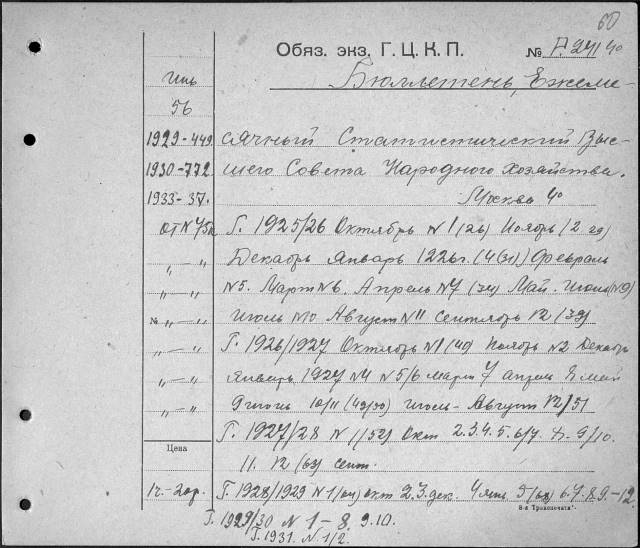 60
Обяз. экз. Г. Ц. К. П.
№ P. 241 4°
Иль
56
Бюллетень, Ежеме-
1929-449
сячный Статистический Выс-
1930-772
шего Совета Народного хозяйства.
1933-37.
Москва 4°
Г. 1925/26 Октябрь N 1 (26) Ноябрь (2 29)
„ — „
Декабрь Январь 1226г. (4(31)) Февраль
„ — „
N5. Март N6. Апрель N7 (34) Май. Июнь (N9)
№ „ — „
Июль N10 Август N11 Сентябрь 12 (39)
„ — „
Г. 1926/1927 Октябрь N1 (40) Ноябрь N2 Декабрь
„ — „
Январь 1927 N4 N5/6 март 7 апрель 8 май
„ — „
9 июнь 10/11 (49/50) Июль - Август 12/51
Г. 1927/28 N 1/(52) Окт 2.3.4.5.6/7. 8. 9/10.
Цена
11. 12 (63) сент.
Г. 1928/1929 N 1 (64) окт 2 3. дек. 4 янв. 5 6. 7. 8. 9. - 12.
8-я "Транспечать".
Г. 1929/30 N 1 - 8. 9. 10.
Г. 1931. N 1/2.